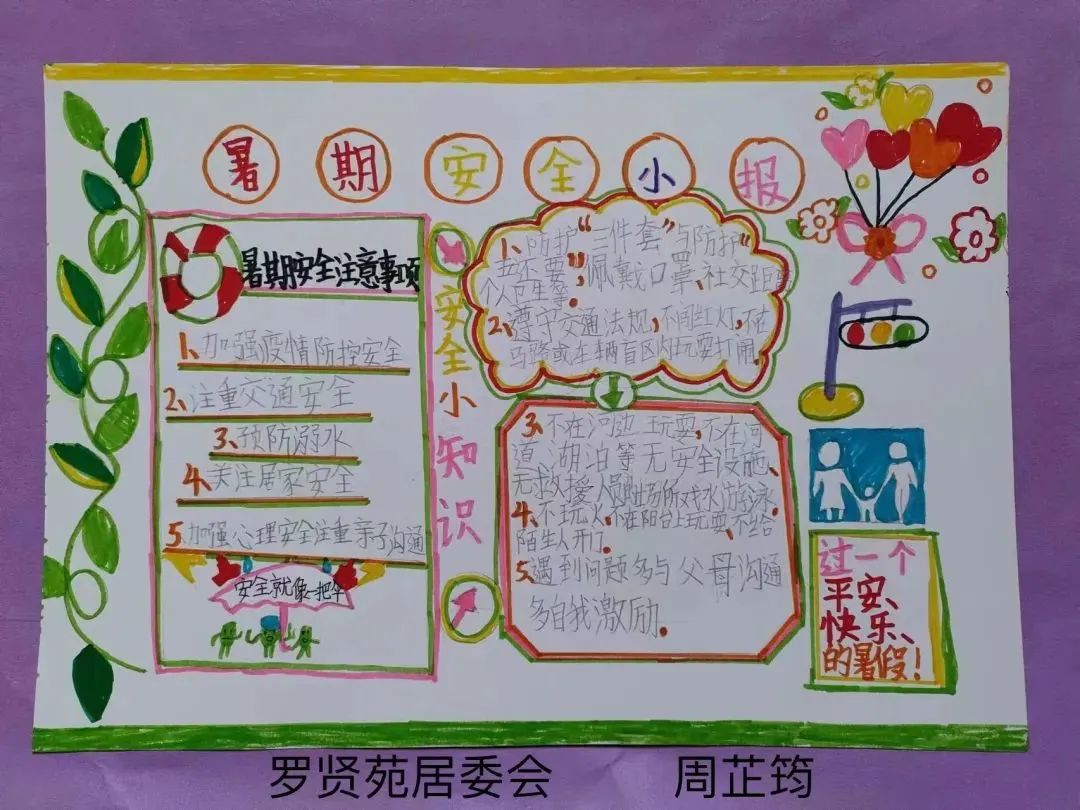 暑期安全小报
暑期安全注意事项
1、加强疫情防控安全
2、注重交通安全
3、预防溺水
4、关注居家安全
5、加强心理安全注重亲子沟通
安全就像一把伞
安全小知识
1、防护“三件套”与防护“
五还要”佩戴口罩、社交距离
个人卫生等。
2、遵守交通法规,不闯红灯,不在
马路或车辆盲区内玩耍打闹。
3、不在河边玩耍,不在河
道、湖泊等无安全设施、
无救援人员的场所戏水游泳。
4、不玩火,不在阳台上玩耍、不给
陌生人开门。
5、遇到问题多与父母沟通
多自我激励。
过一个
平安、
快乐、
的暑假!
罗贤苑居委会 周芷筠